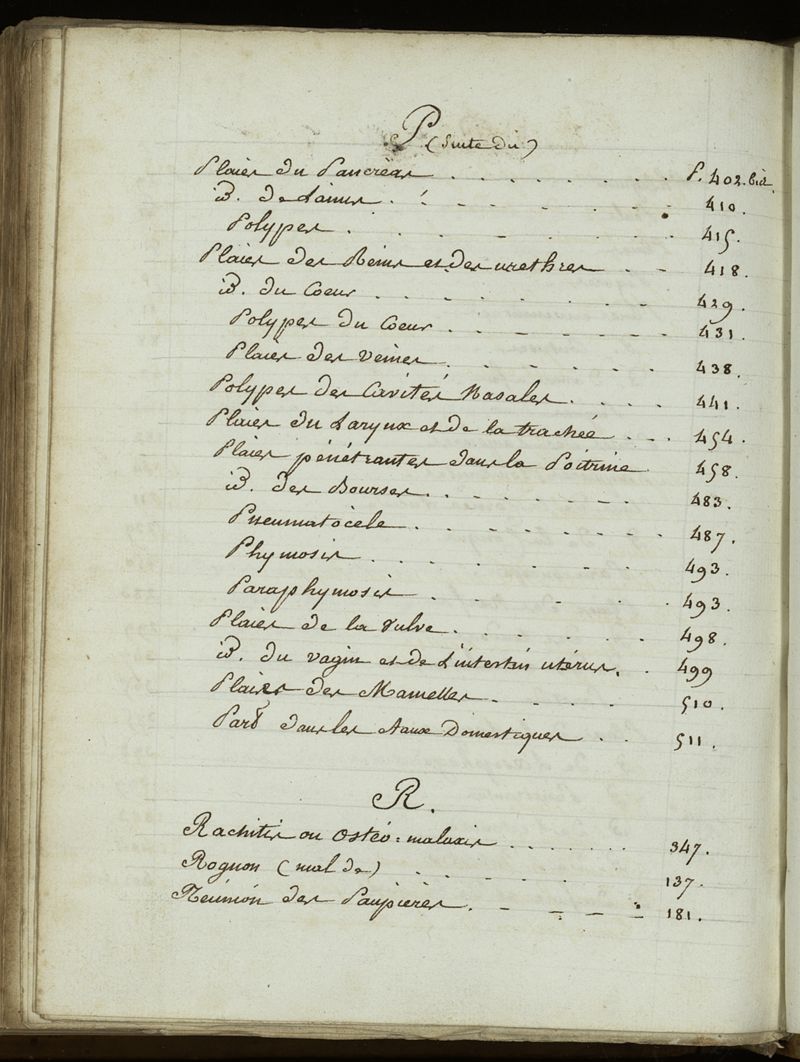 P
(Suite du)
Plaies du Pancréas . . . . . . . P. 402. bis.
id. de L'anus . . . . . . . 410.
Polypes . . . . . . . 415.
Plaies des Reins et des urethres . . - 418.
id. du Coeur . . . . . . . 429.
Polypes du Coeur . . . . . . . 431.
Plaies des veines . . . . . . . 438.
Polypes des Cavités Nasales . . . . 441.
Plaies du Larynx et de la trachée . . . 454.
Plaies pénétrantes dans la Poitrine 458.
id. des Bourses . . . . . . . 483.
Pneumatocèle . . . . . . . 487.
Phymosis . . . . . . . 493.
Paraphymosis . . . . . . . 493.
Plaies de la Vulve . . . . . . . 498.
id. du vagin et de L'intestin utérus. . 499
Plaies des Mamelles . . . . . 510.
Part dans les Aaux Domestiques . . 511.
R.
Rachitis ou Ostéo=malaxis . . . . . . . 347.
Rognon (mal de) . . . . . . . 137.
Réunion des Paupières . - . - - 181.